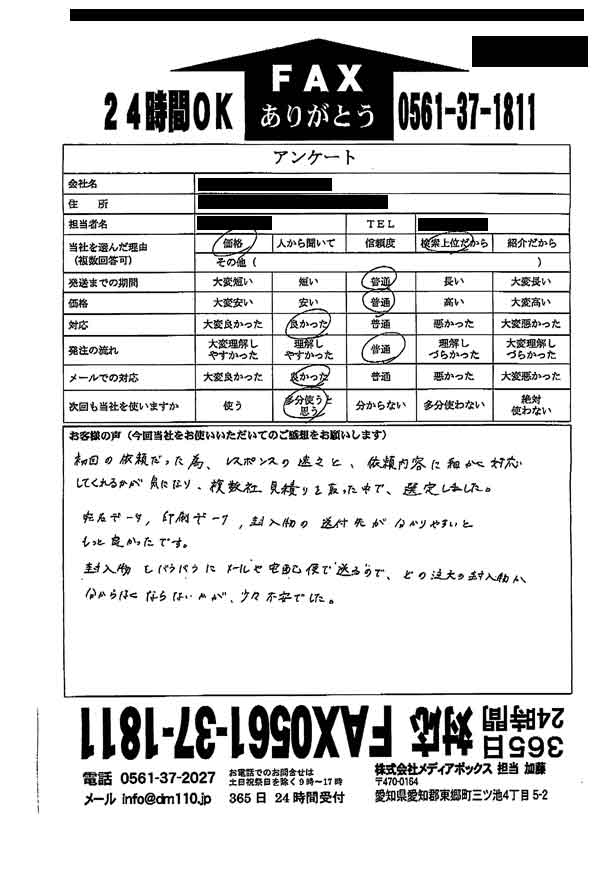 FAX
ありがとう
24時間OK
0561-37-1811
アンケート
会社名
住 所
担当者名 TEL
当社を選んだ理由(複数回答可) 価格 人から聞いて 信頼度 検索上位だから 紹介だから
その他( )
発送までの期間 大変短い 短い 普通 長い 大変長い
価格 大変安い 安い 普通 高い 大変高い
対応 大変良かった 良かった 普通 悪かった 大変悪かった
発注の流れ 大変理解しやすかった 理解しやすかった 普通 理解しづらかった 大変理解しづらかった
メールでの対応 大変良かった 良かった 普通 悪かった 大変悪かった
次回も当社を使いますか 使う 多分使うと思う 分からない 多分使わない 絶対使わない
お客様の声(今回当社をお使いいただいてのご感想をお願いします)
初回の依頼だった為、レスポンスの速さと、依頼内容に細かく対応
してくれるかが気になり、複数社見積りを取った中で、選定しました。
宛名データ,印刷データ,封入物の送付先が分かりやすいと
もっと良かったです。
封入物もバラバラにメールや宅配便で送るので、どの注文の封入物か
分からなくならないかが、少々不安でした。
365日24時間対応 FAX0561-37-1811
電話 0561-37-2027
お電話でのお問合せは
土日祝祭日を除く9時~17時
株式会社メディアボックス 担当 加藤
〒470-0164
メール info@dm110.jp
365日 24時間受付
愛知県愛知郡東郷町三ツ池4丁目5-2